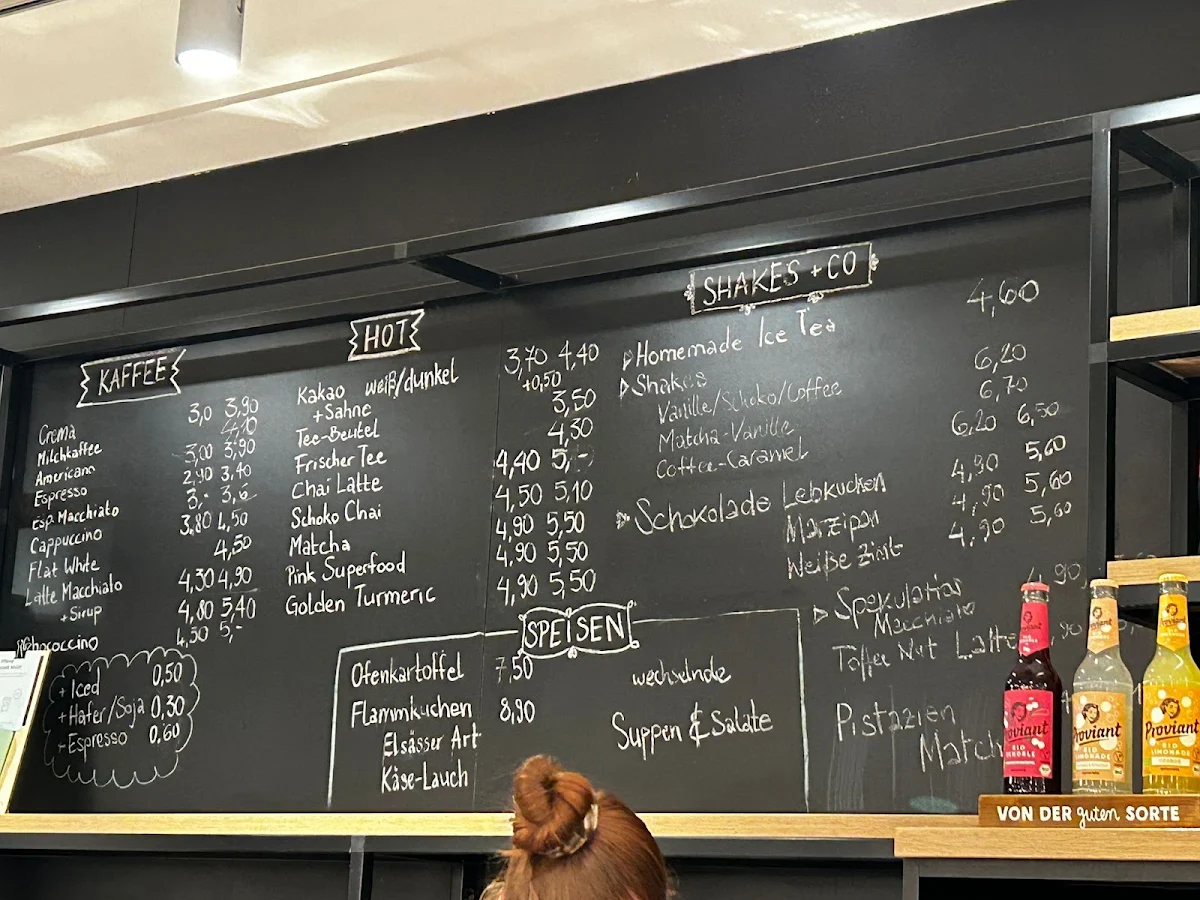 KAFFEE
Crema 3,0 3,90
Milchkaffee 4,10
Americano 3,00 3,90
Espresso 2,90 3,40
Esp. Macchiato 3,-
Cappuccino 3,80 4,50
Flat White 4,50
Latte Macchiato 4,30 4,90
+ Sirup 4,80 5,40
4,50 5,-
+ Iced 0,50
+ Hafer/Soja 0,30
+ Espresso 0,60
HOT
Kakao weiß/dunkel 3,70 4,40
+ Sahne +0,50
Tee-Beutel 3,50
Frischer Tee 4,30
Chai Latte 4,40
Schoko Chai 4,50 5,10
Matcha 4,90 5,50
Pink Superfood 4,90 5,50
Golden Turmeric 4,90 5,50
SPEISEN
Ofenkartoffel 7,50
Flammkuchen 8,90
Elsässer Art
Käse-Lauch
wechselnde
Suppen & Salate
SHAKES + CO
Homemade Ice Tea 4,60
Shakes
Vanille/Schoko/Coffee 6,20
Matcha-Vanille 6,70
Coffee-Caramel 6,20 6,50
Schokolade Lebkuchen 4,90 5,60
Marzipan 4,90 5,60
Weiße Zimt 4,90 5,60
Spekulatius
Macchiato
Toffee Nut Latte
Pistazien
Match
Proviant
Proviant
BIO
LIMONADE
Proviant
BIO
LIMONADE
ORANGE
VON DER guten SORTE